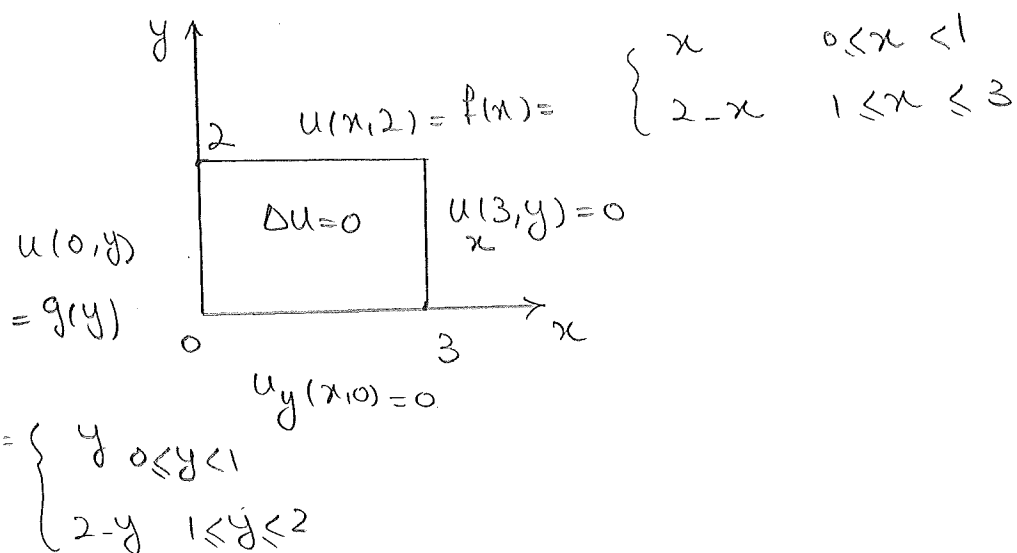 y
u(x,2) = f(x) = { x 0≤x<1
2-x 1≤x≤3
2
Δu=0
u_x(3,y)=0
u(0,y)
= g(y)
0
3
x
u_y(x,0)=0
= { y 0≤y<1
2-y 1≤y≤2